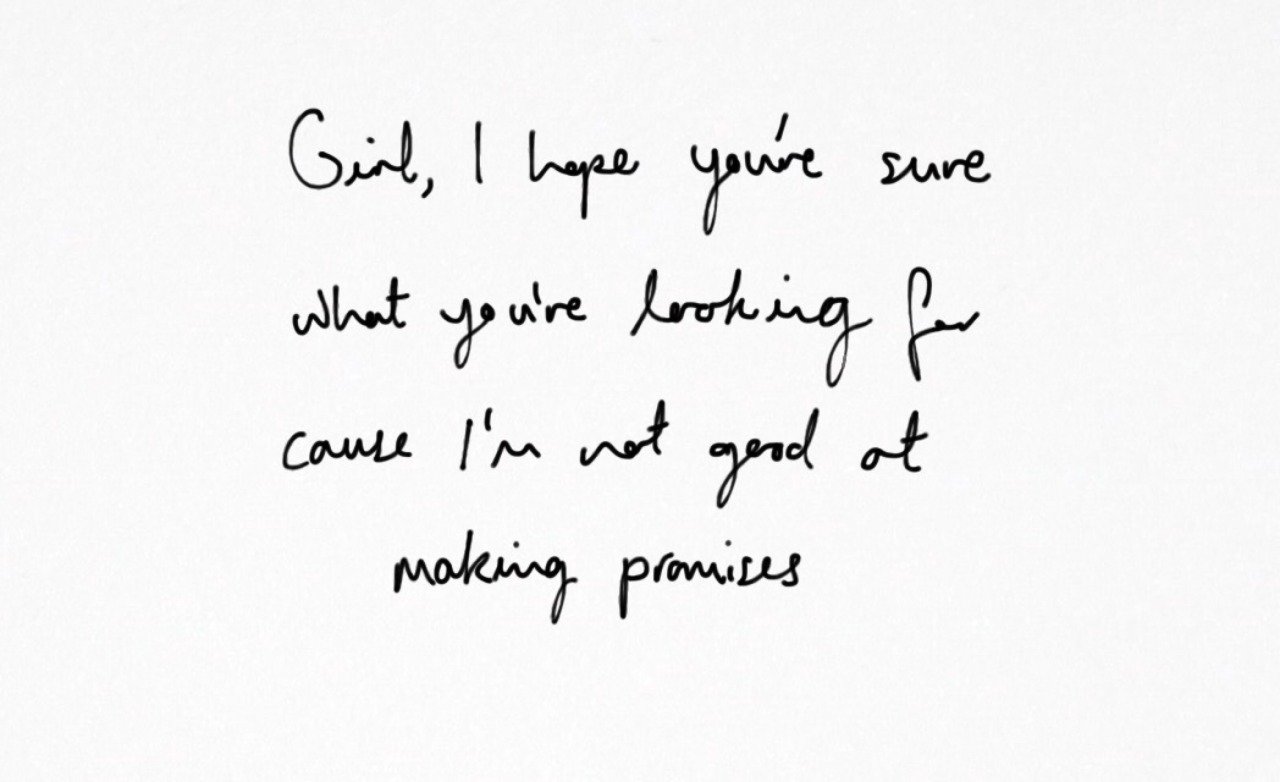 Girl, I hope you're sure
what you're looking for
cause I'm not good at
making promises